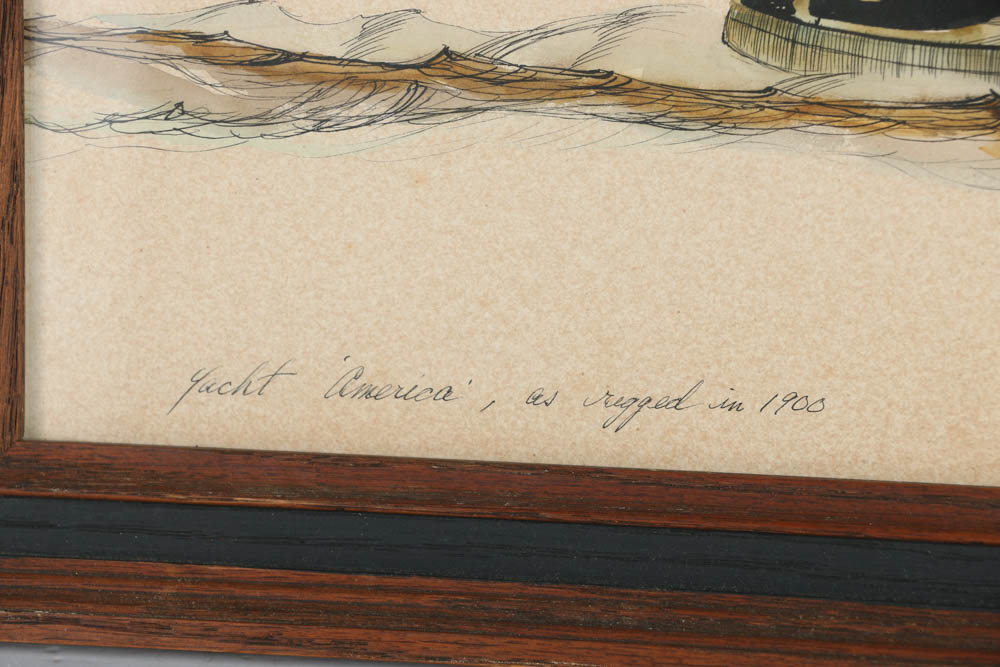 Yacht 'America', as rigged in 1900